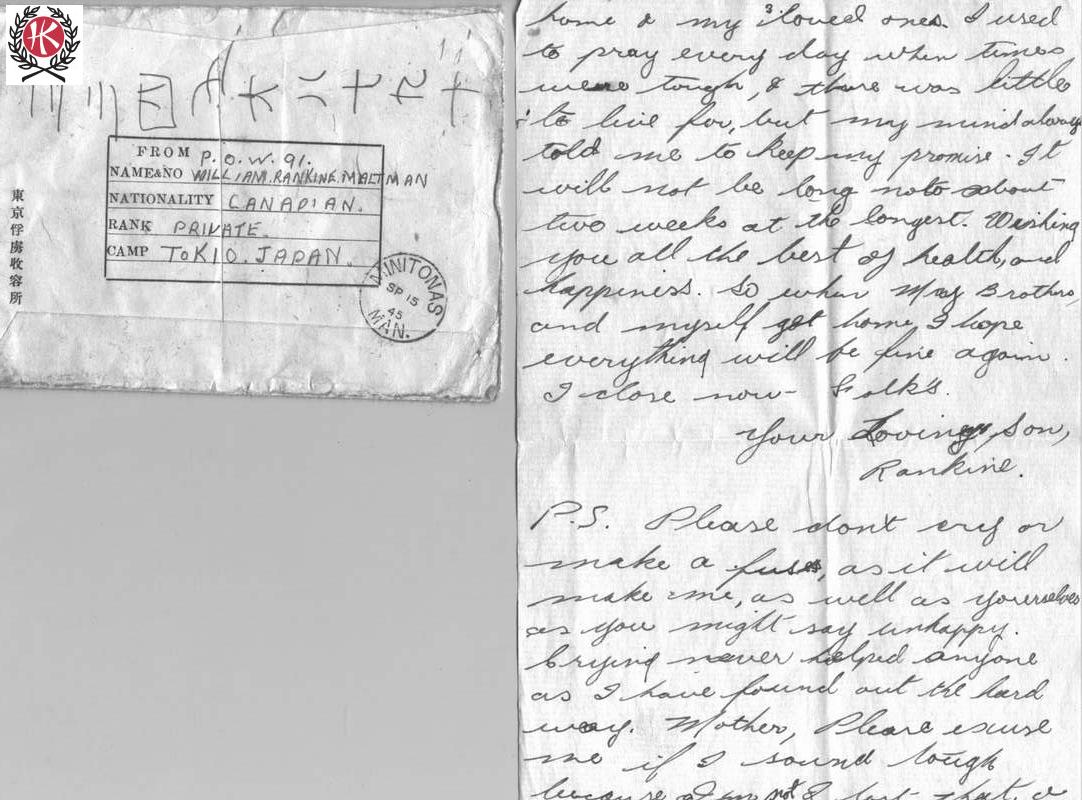 HK
FROM P.O.W. 91.
NAME&NO WILLIAM.RANKINE.MALTMAN
NATIONALITY CANADIAN.
RANK PRIVATE.
CAMP TOKIO. JAPAN.
東京俘虜收容所
MINITONAS
SP 15
45
MAN.
home & my loved ones. I used
to pray every day when times
were tough, & there was little
to live for, but my mind always
told me to keep my promise. It
will not be long now about
two weeks at the longest. Wishing
you all the best of health, and
happiness. So when My Brothers,
and myself get home, I hope
everything will be fine again.
I close now - Folk's.
Your Loving Son,
Rankine.
P.S. Please don't cry or
make a fuss, as it will
make me, as well as yourselves
as you might say unhappy.
Crying never helped anyone
as I have found out the hard
way. Mother, Please excuse
me if I sound tough
because I'm not &